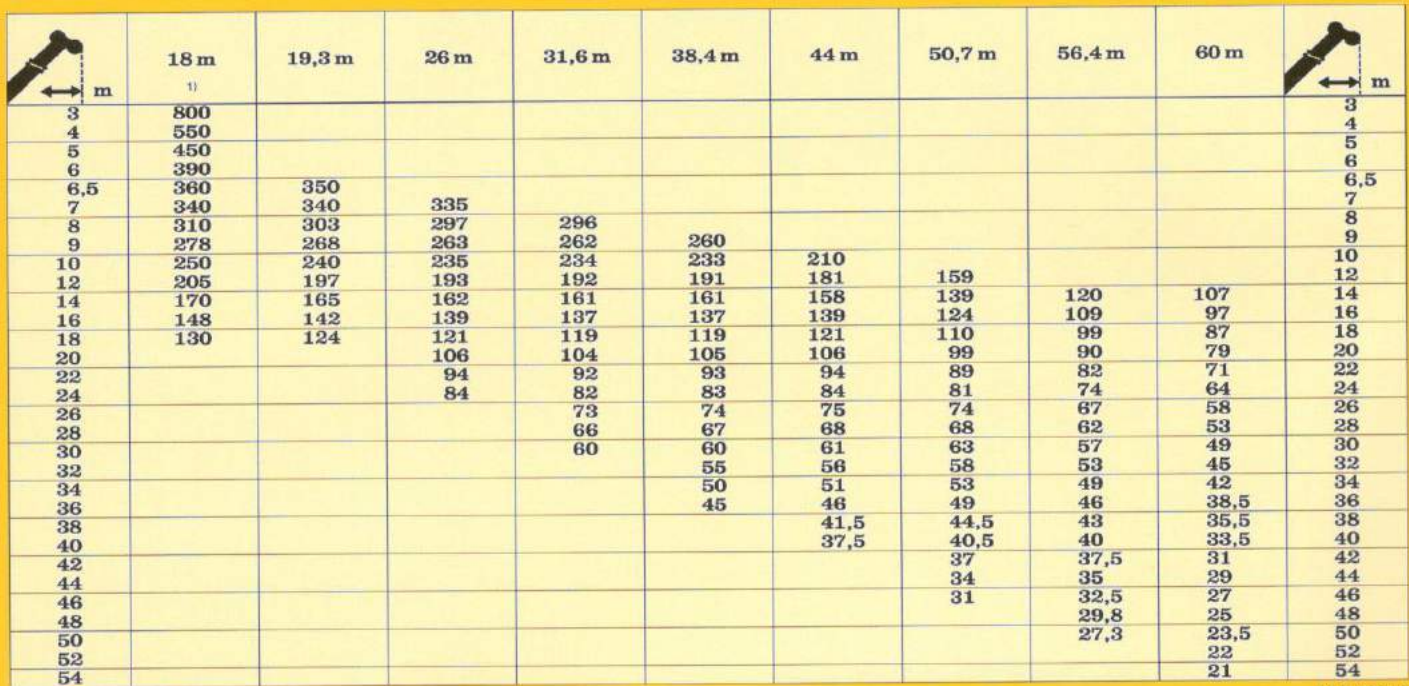 m 18 m 19,3 m 26 m 31,6 m 38,4 m 44 m 50,7 m 56,4 m 60 m m
1)
3 800 3
4 550 4
5 450 5
6 390 6
6,5 360 350 6,5
7 340 340 335 7
8 310 303 297 296 8
9 278 268 263 262 260 9
10 250 240 235 234 233 210 10
12 205 197 193 192 191 181 159 12
14 170 165 162 161 161 158 139 120 107 14
16 148 142 139 137 137 139 124 109 97 16
18 130 124 121 119 119 121 110 99 87 18
20 106 104 105 106 99 90 79 20
22 94 92 93 94 89 82 71 22
24 84 82 83 84 81 74 64 24
26 73 74 75 74 67 58 26
28 66 67 68 68 62 53 28
30 60 60 61 63 57 49 30
32 55 56 58 53 45 32
34 50 51 53 49 42 34
36 45 46 49 46 38,5 36
38 41,5 44,5 43 35,5 38
40 37,5 40,5 40 33,5 40
42 37 37,5 31 42
44 34 35 29 44
46 31 32,5 27 46
48 29,8 25 48
50 27,3 23,5 50
52 22 52
54 21 54